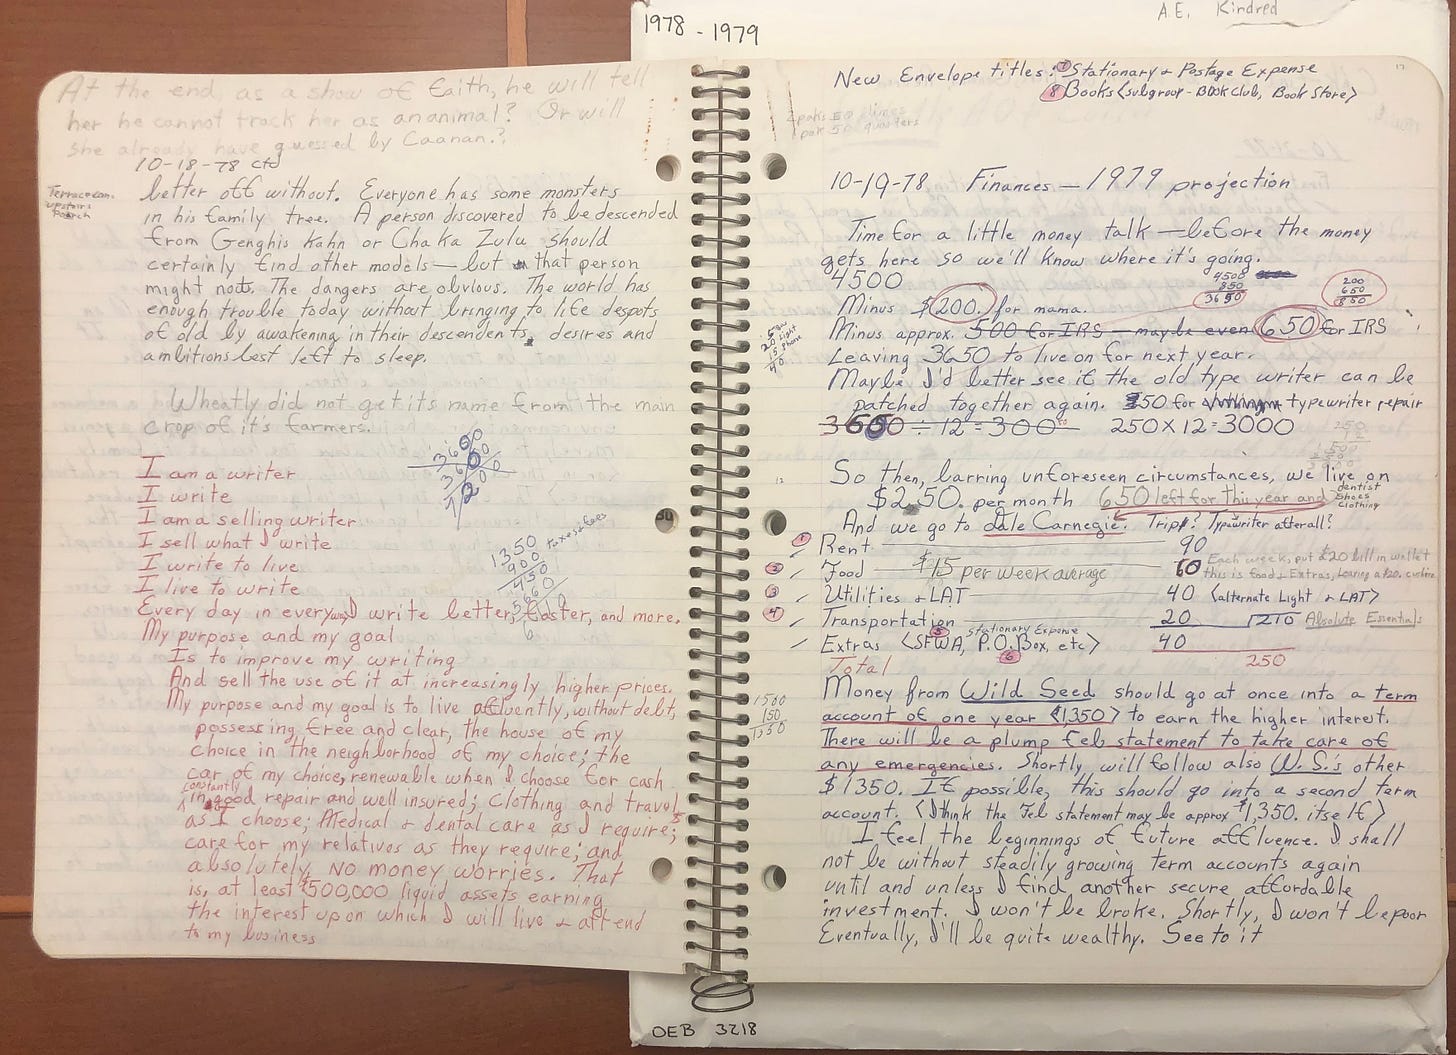 1978 - 1979
A.E. Kindred
At the end, as a show of faith, he will tell
her he cannot track her as an animal? Or will
she already have guessed by Caanan.?
10-18-78 ctd
Terrace
upstairs
Porch
better off without. Everyone has some monsters
in his family tree. A person discovered to be descended
from Genghis Kahn or Chaka Zulu should
certainly find other models — but that person
might not. The dangers are obvious. The world has
enough trouble today without bringing to life despots
of old by awakening in their descendents, desires and
ambitions best left to sleep.
Wheatly did not get its name from the main
crop of it's farmers.
3600
3600
7200
I am a writer
I write
I am a selling writer
I sell what I write
I write to live
I live to write
1350
900 taxes & fees
450
Every day in every way I write better, faster, and more.
My purpose and my goal
Is to improve my writing
And sell the use of it at increasingly higher prices.
My purpose and my goal is to live affluently, without debt,
possessing free and clear, the house of my
choice in the neighborhood of my choice; the
car of my choice, renewable when I choose for cash
constantly
in good repair and well insured; Clothing and travel
as I choose; Medical & dental care as I require;
care for my relatives as they require; and
absolutely, NO money worries. That
is, at least $500,000 liquid assets earning
the interest upon which I will live & attend
to my business
17
New Envelope titles: 7 Stationary & Postage Expense
8 Books <subgroup - BOOK Club, Book Store>
2 paks 50 dimes
1 pak 50 quarters
10-19-78 Finances — 1979 projection
Time for a little money talk — before the money
gets here so we'll know where it's going.
4500
4500
850
3650
200
650
850
Minus $200. for mama.
Minus approx. 500 for IRS — maybe even 650 for IRS
20 Light
15 Phone
40
Leaving 3650 to live on for next year.
Maybe I'd better see if the old type writer can be
patched together again. $50 for typewriter repair
3600 ÷ 12 = 300 250 X 12 = 3000
250
12
12
So then, barring unforeseen circumstances, we live on
$250. per month 650 left for this year and dentist
shoes
clothing
And we go to Dale Carnegie. Trip? Typewriter afterall?
1 Rent 90
2 Food $15 per week average 60 Each week, put $20 bill in wallet
this is food & Extras, leaving a $20. cushion
3 Utilities & LAT 40 <alternate Light & LAT>
4 Transportation 20 1210 Absolute Essentials
5 Stationary Expense
Extras <SFWA, P.O. Box, etc> 40
6
Total 250
Money from Wild Seed should go at once into a term
1500
150
1350
account of one year <1350> to earn the higher interest.
There will be a plump Feb statement to take care of
any emergencies. Shortly will follow also W.S.'s other
$1350. If possible, this should go into a second term
account. <I think the Feb statement may be approx $1,350. itself>
I feel the beginnings of future affluence. I shall
not be without steadily growing term accounts again
until and unless I find, another secure affordable
investment. I won't be broke. Shortly, I won't be poor
Eventually, I'll be quite wealthy. See to it
OEB 3218